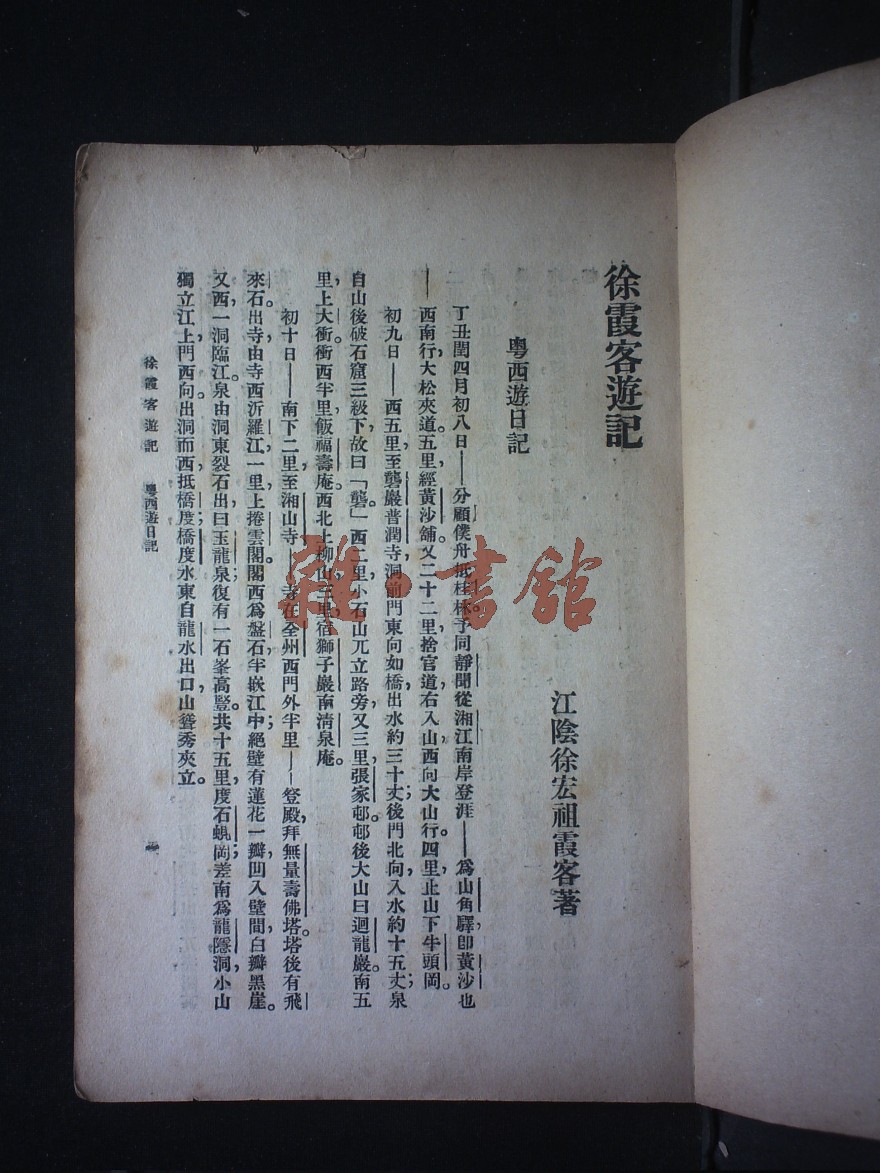 徐霞客遊記
江陰徐宏祖霞客著
粵西遊日記
丁丑閏四月初八日——分顧僕舟抵桂林予同靜聞從湘江南岸登涯——爲山角驛卽黃沙也
——西南行大松夾道五里經黃沙舖又二十二里捨官道右入山西向大山行。四里止山下牛頭岡。
初九日——西五里至龔巖普潤寺洞前門東向如橋出水約三十丈後門北向入水約十五丈泉
自山後破石窟三級下，故曰「龔。」西二里小石山兀立路旁又三里，張家邨邨後大山曰迴龍巖。南五
里，上大衝衝西半里，飯福壽庵。西北上柳山三里，宿獅子巖南清泉庵。
初十日——南下二里至湘山寺——寺在全州西門外半里——登殿，拜無量壽佛塔。塔後有飛
來石。出寺由寺西沂羅江一里上捲雲閣。閣西爲盤石半嵌江中；絕壁有蓮花一瓣凹入壁間，白瓣黑崖。
又西一洞臨江。泉由洞東裂石出，曰玉龍泉復有一石峯高豎。共十五里，度石蜆岡；差南爲龍隱洞，小山
獨立江上，門西向出洞而西，抵橋；度橋度水東，自龍水出口，山聳秀夾立。
徐霞客遊記 粵西遊日記
雜·書館